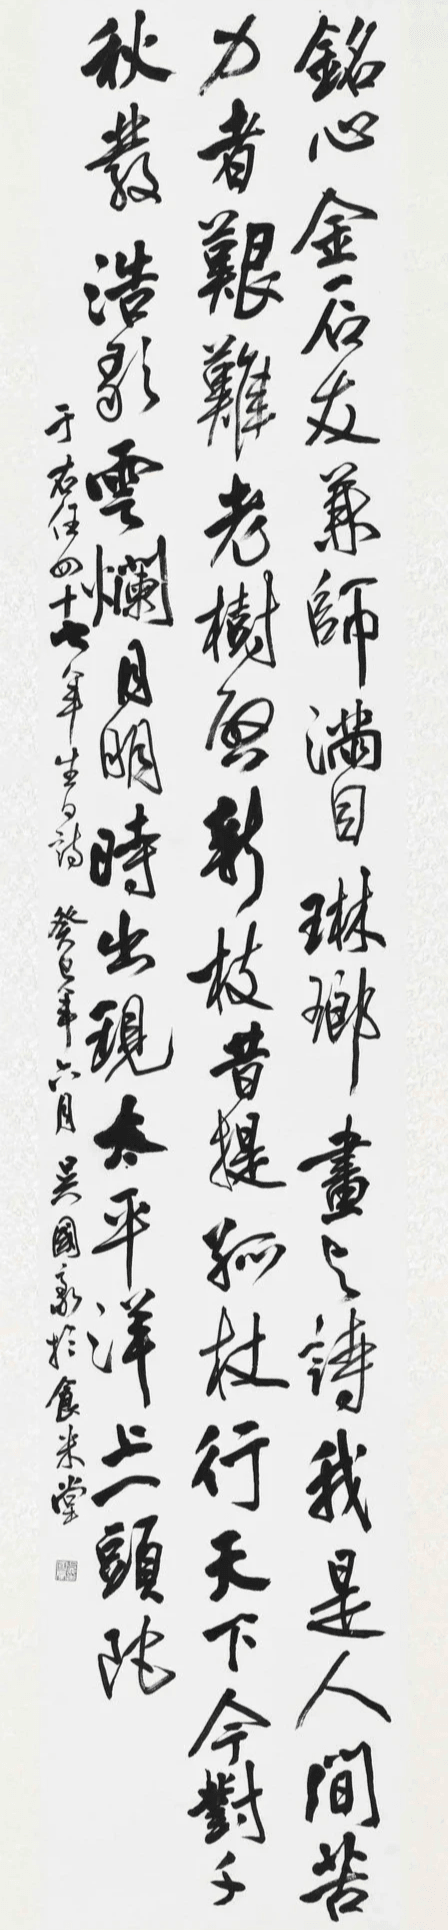 銘心金石友兼師滿目琳瑯畫与詩我是人間苦
力者艱難老樹啟新枝昔提孤杖行天下今對千
秋發浩歌雲爛月明時出現太平洋上一頭陀
于右任四十七年生日詩 癸巳年六月 吳國豪於食米堂